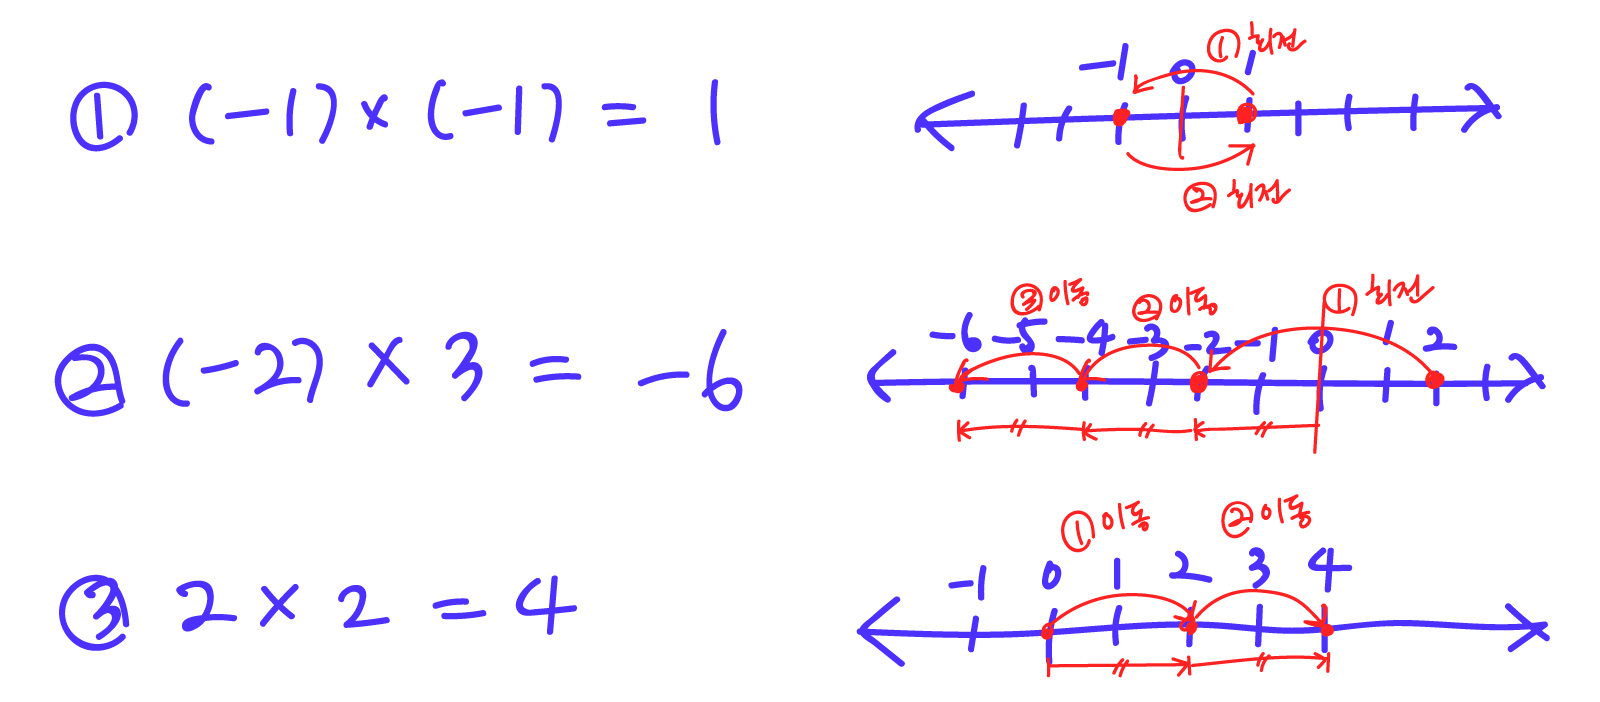 ① (-1) × (-1) = 1
① 뒤집
-1 0 1
② 뒤집
② (-2) × 3 = -6
③ 이동 ② 이동 ① 뒤집
-6 -5 -4 -3 -2 -1 0 1 2
③ 2 × 2 = 4
① 이동 ② 이동
-1 0 1 2 3 4